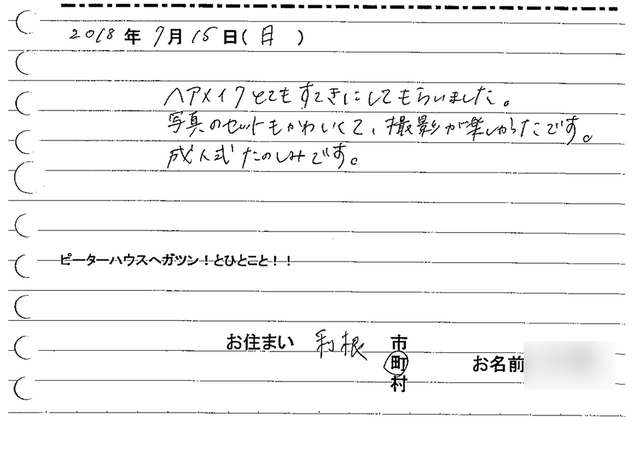 2018年 7月 15日( 日 )
ヘアメイクとてもすてきにしてもらいました。
写真のセットもかわいくて、撮影が楽しかったです。
成人式たのしみです。
ピーターハウスへガツン！とひとこと！！
お住まい 利根 市
町
村
お名前